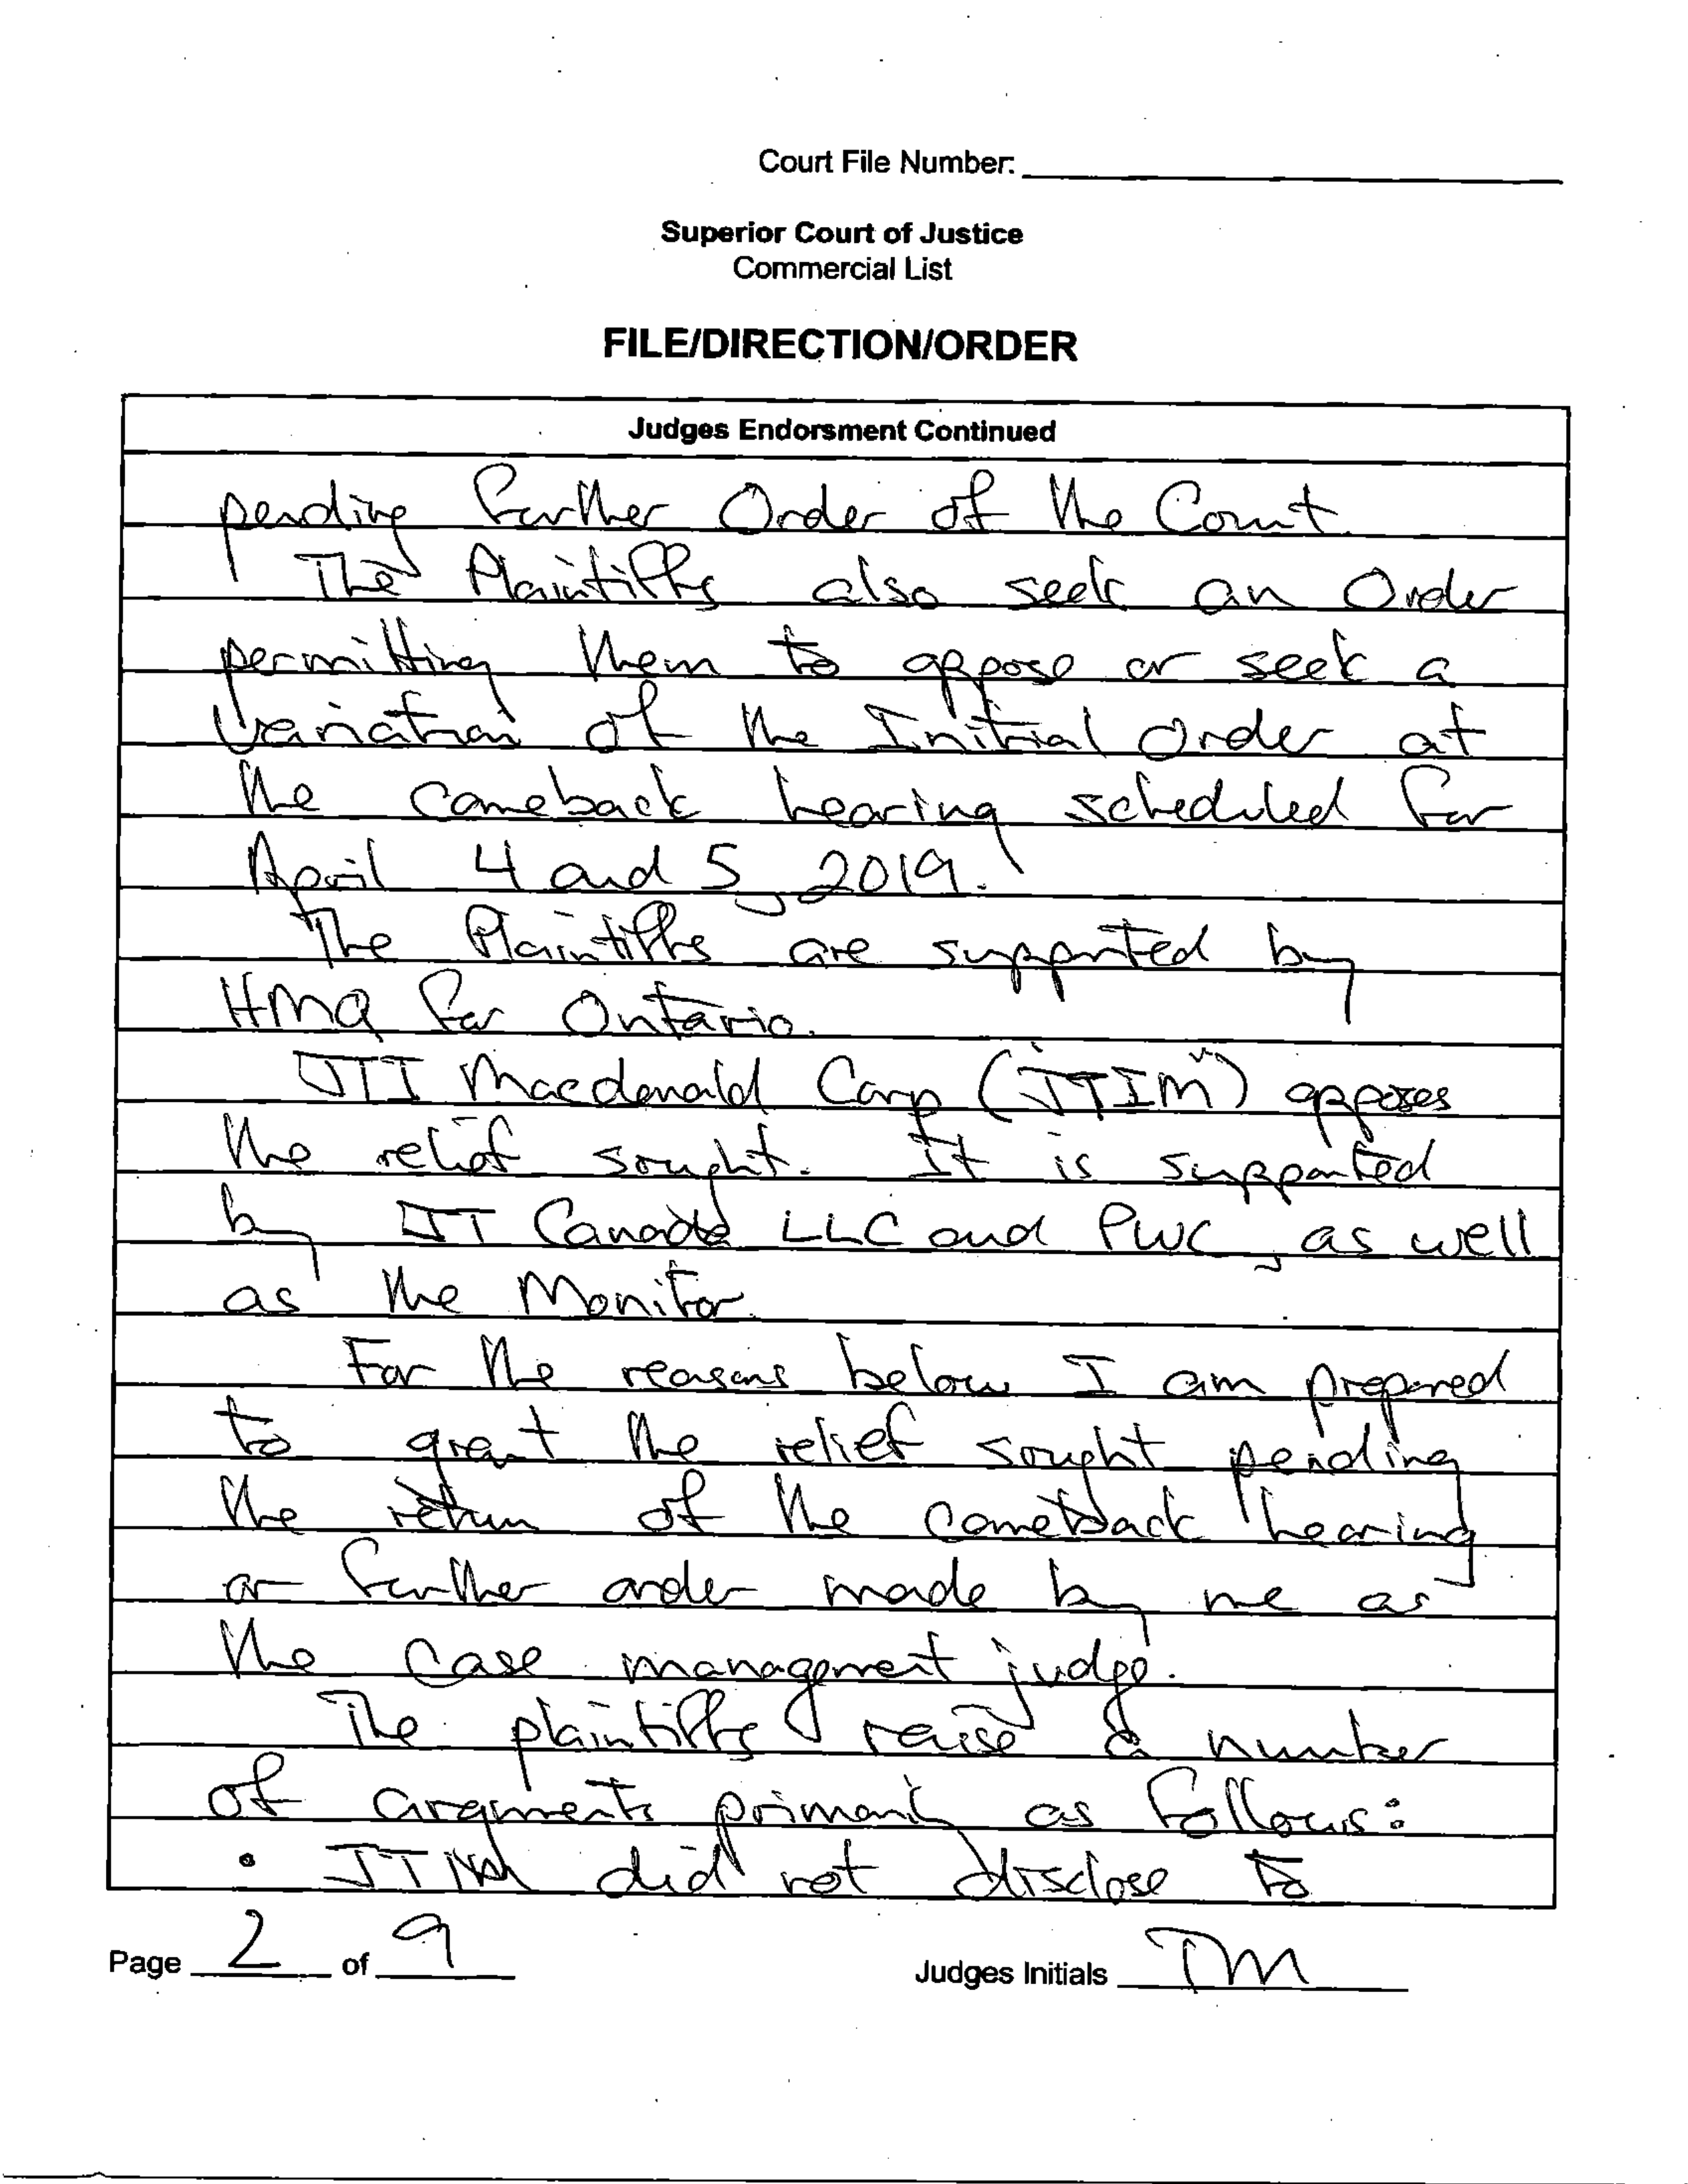 Court File Number:
Superior Court of Justice
Commercial List
FILE/DIRECTION/ORDER
Judges Endorsment Continued
pending further Order of the Court.
The Plaintiffs also seek an Order
permitting them to oppose or seek a
variation of the Initial Order at
the comeback hearing scheduled for
April 4 and 5, 2019.
The Plaintiffs are supported by
HMQ for Ontario.
JTI Macdonald Corp ("JTIM") opposes
the relief sought. It is supported
by JT Canada LLC and PWC, as well
as the Monitor.
For the reasons below I am prepared
to grant the relief sought pending
the return of the comeback hearing
or further order made by me as
the case management judge.
The plaintiffs raise a number
of arguments primarily as follows:
• JTIM did not disclose to
Page 2 of 9
Judges Initials TM